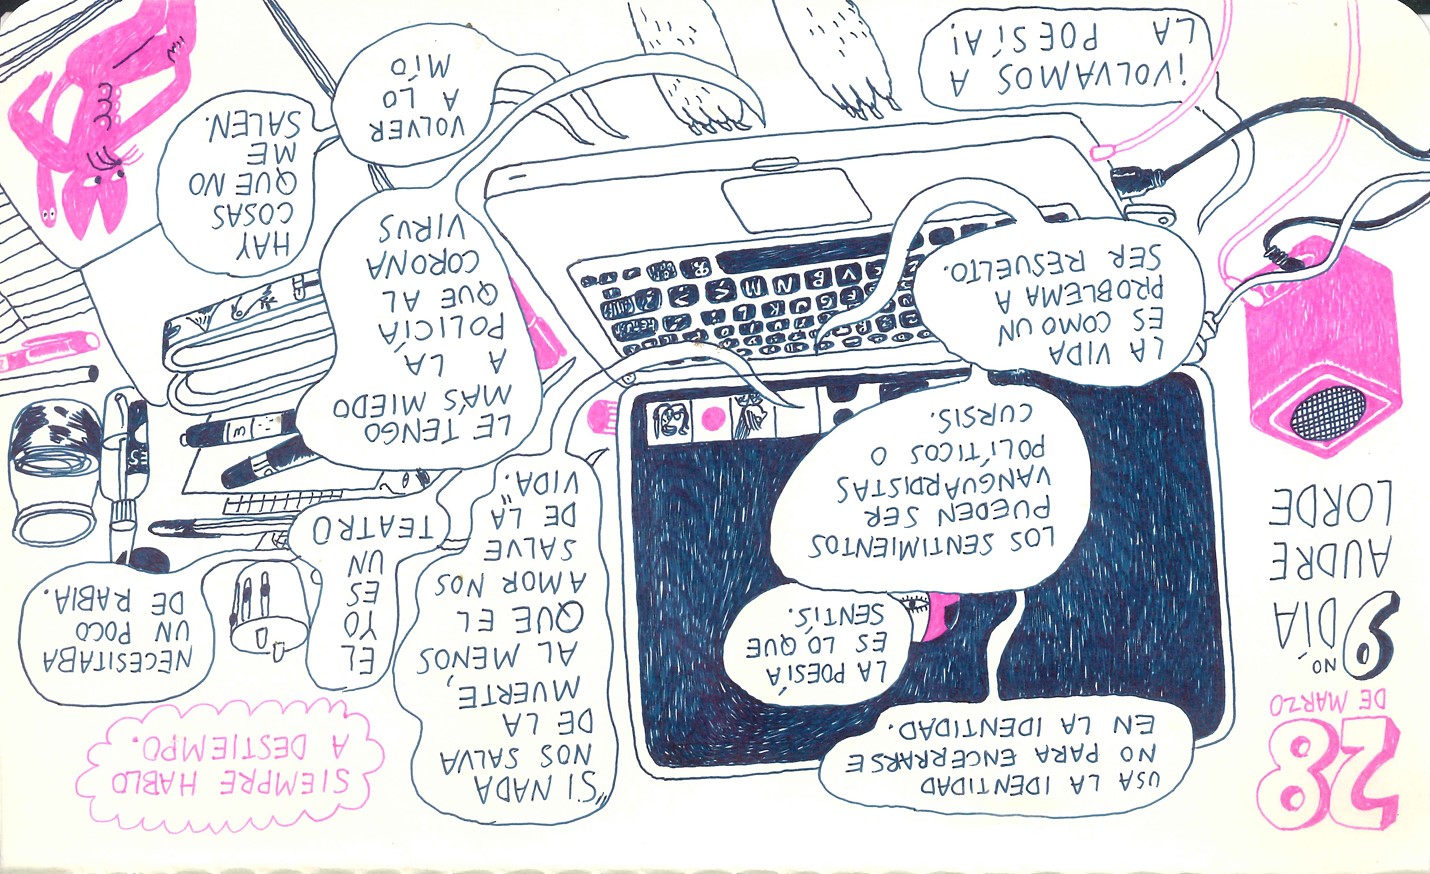 28
DE MARZO
9 NO
DÍA
AUDRE
LORDE
USA LA IDENTIDAD
NO PARA ENCERRARSE
EN LA IDENTIDAD.
LA POESÍA
ES LO QUE
SENTÍS.
LOS SENTIMIENTOS
PUEDEN SER
VANGUARDISTAS
POLÍTICOS O
CURSIS.
LA VIDA
ES COMO UN
PROBLEMA A
SER RESUELTO.
¡VOLVAMOS A
LA POESÍA!
"SI NADA
NOS SALVA
DE LA
MUERTE,
AL MENOS
QUE EL
AMOR NOS
SALVE
DE LA
VIDA."
SIEMPRE HABLO
A DESTIEMPO.
EL
YO
ES
UN
TEATRO
NECESITABA
UN POCO
DE RABIA.
LE TENGO
MÁS MIEDO
A LA
POLICÍA
QUE AL
CORONA
VIRUS
HAY
COSAS
QUE NO
ME
SALEN.
VOLVER
A LO
MÍO